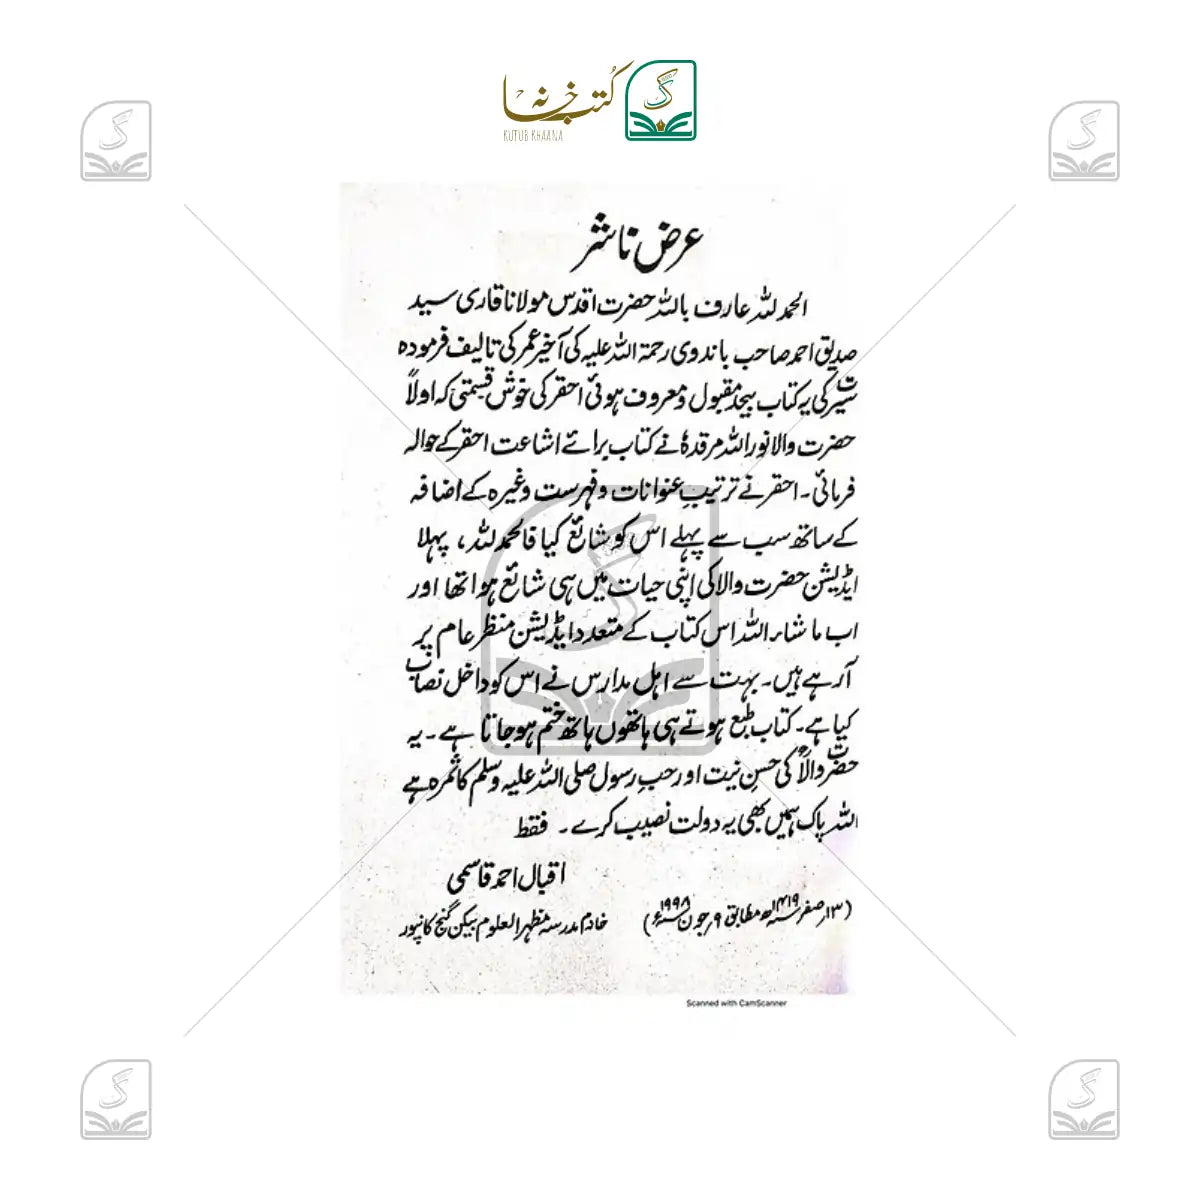 کتب خانہ
KUTUB KHAANA
عرض ناشر
الحمد للہ عارف باللہ حضرت اقدس مولانا قاری سید
صدیق احمد صاحب باندوی رحمۃ اللہ علیہ کی آخیر عمر کی تالیف فرمودہ
سیرت کی یہ کتاب بیحد مقبول و معروف ہوئی احقر کی خوش قسمتی کہ اولاً
حضرت والا نور اللہ مرقدہٗ نے کتاب برائے اشاعت احقر کے حوالہ
فرمائی۔ احقر نے ترتیبِ عنوانات و فہرست وغیرہ کے اضافہ
کے ساتھ سب سے پہلے اس کو شائع کیا فالحمد للہ، پہلا
ایڈیشن حضرت والا کی اپنی حیات میں ہی شائع ہوا تھا اور
اب ماشاء اللہ اس کتاب کے متعدد ایڈیشن منظر عام پر
آرہے ہیں۔ بہت سے اہل مدارس نے اس کو داخل نصاب
کیا ہے۔ کتاب طبع ہوتے ہی ہاتھوں ہاتھ ختم ہوجاتا ہے۔ یہ
حضرت والاؒ کی حسن نیت اور حب رسول صلی اللہ علیہ وسلم کا ثمرہ ہے
اللہ پاک ہمیں بھی یہ دولت نصیب کرے۔ فقط
اقبال احمد قاسمی
(۱۳؍صفر ۱۴۱۹ھ مطابق ۹؍جون ۱۹۹۸ء) خادم مدرسہ مظہر العلوم بیکن گنج کانپور
Scanned with CamScanner